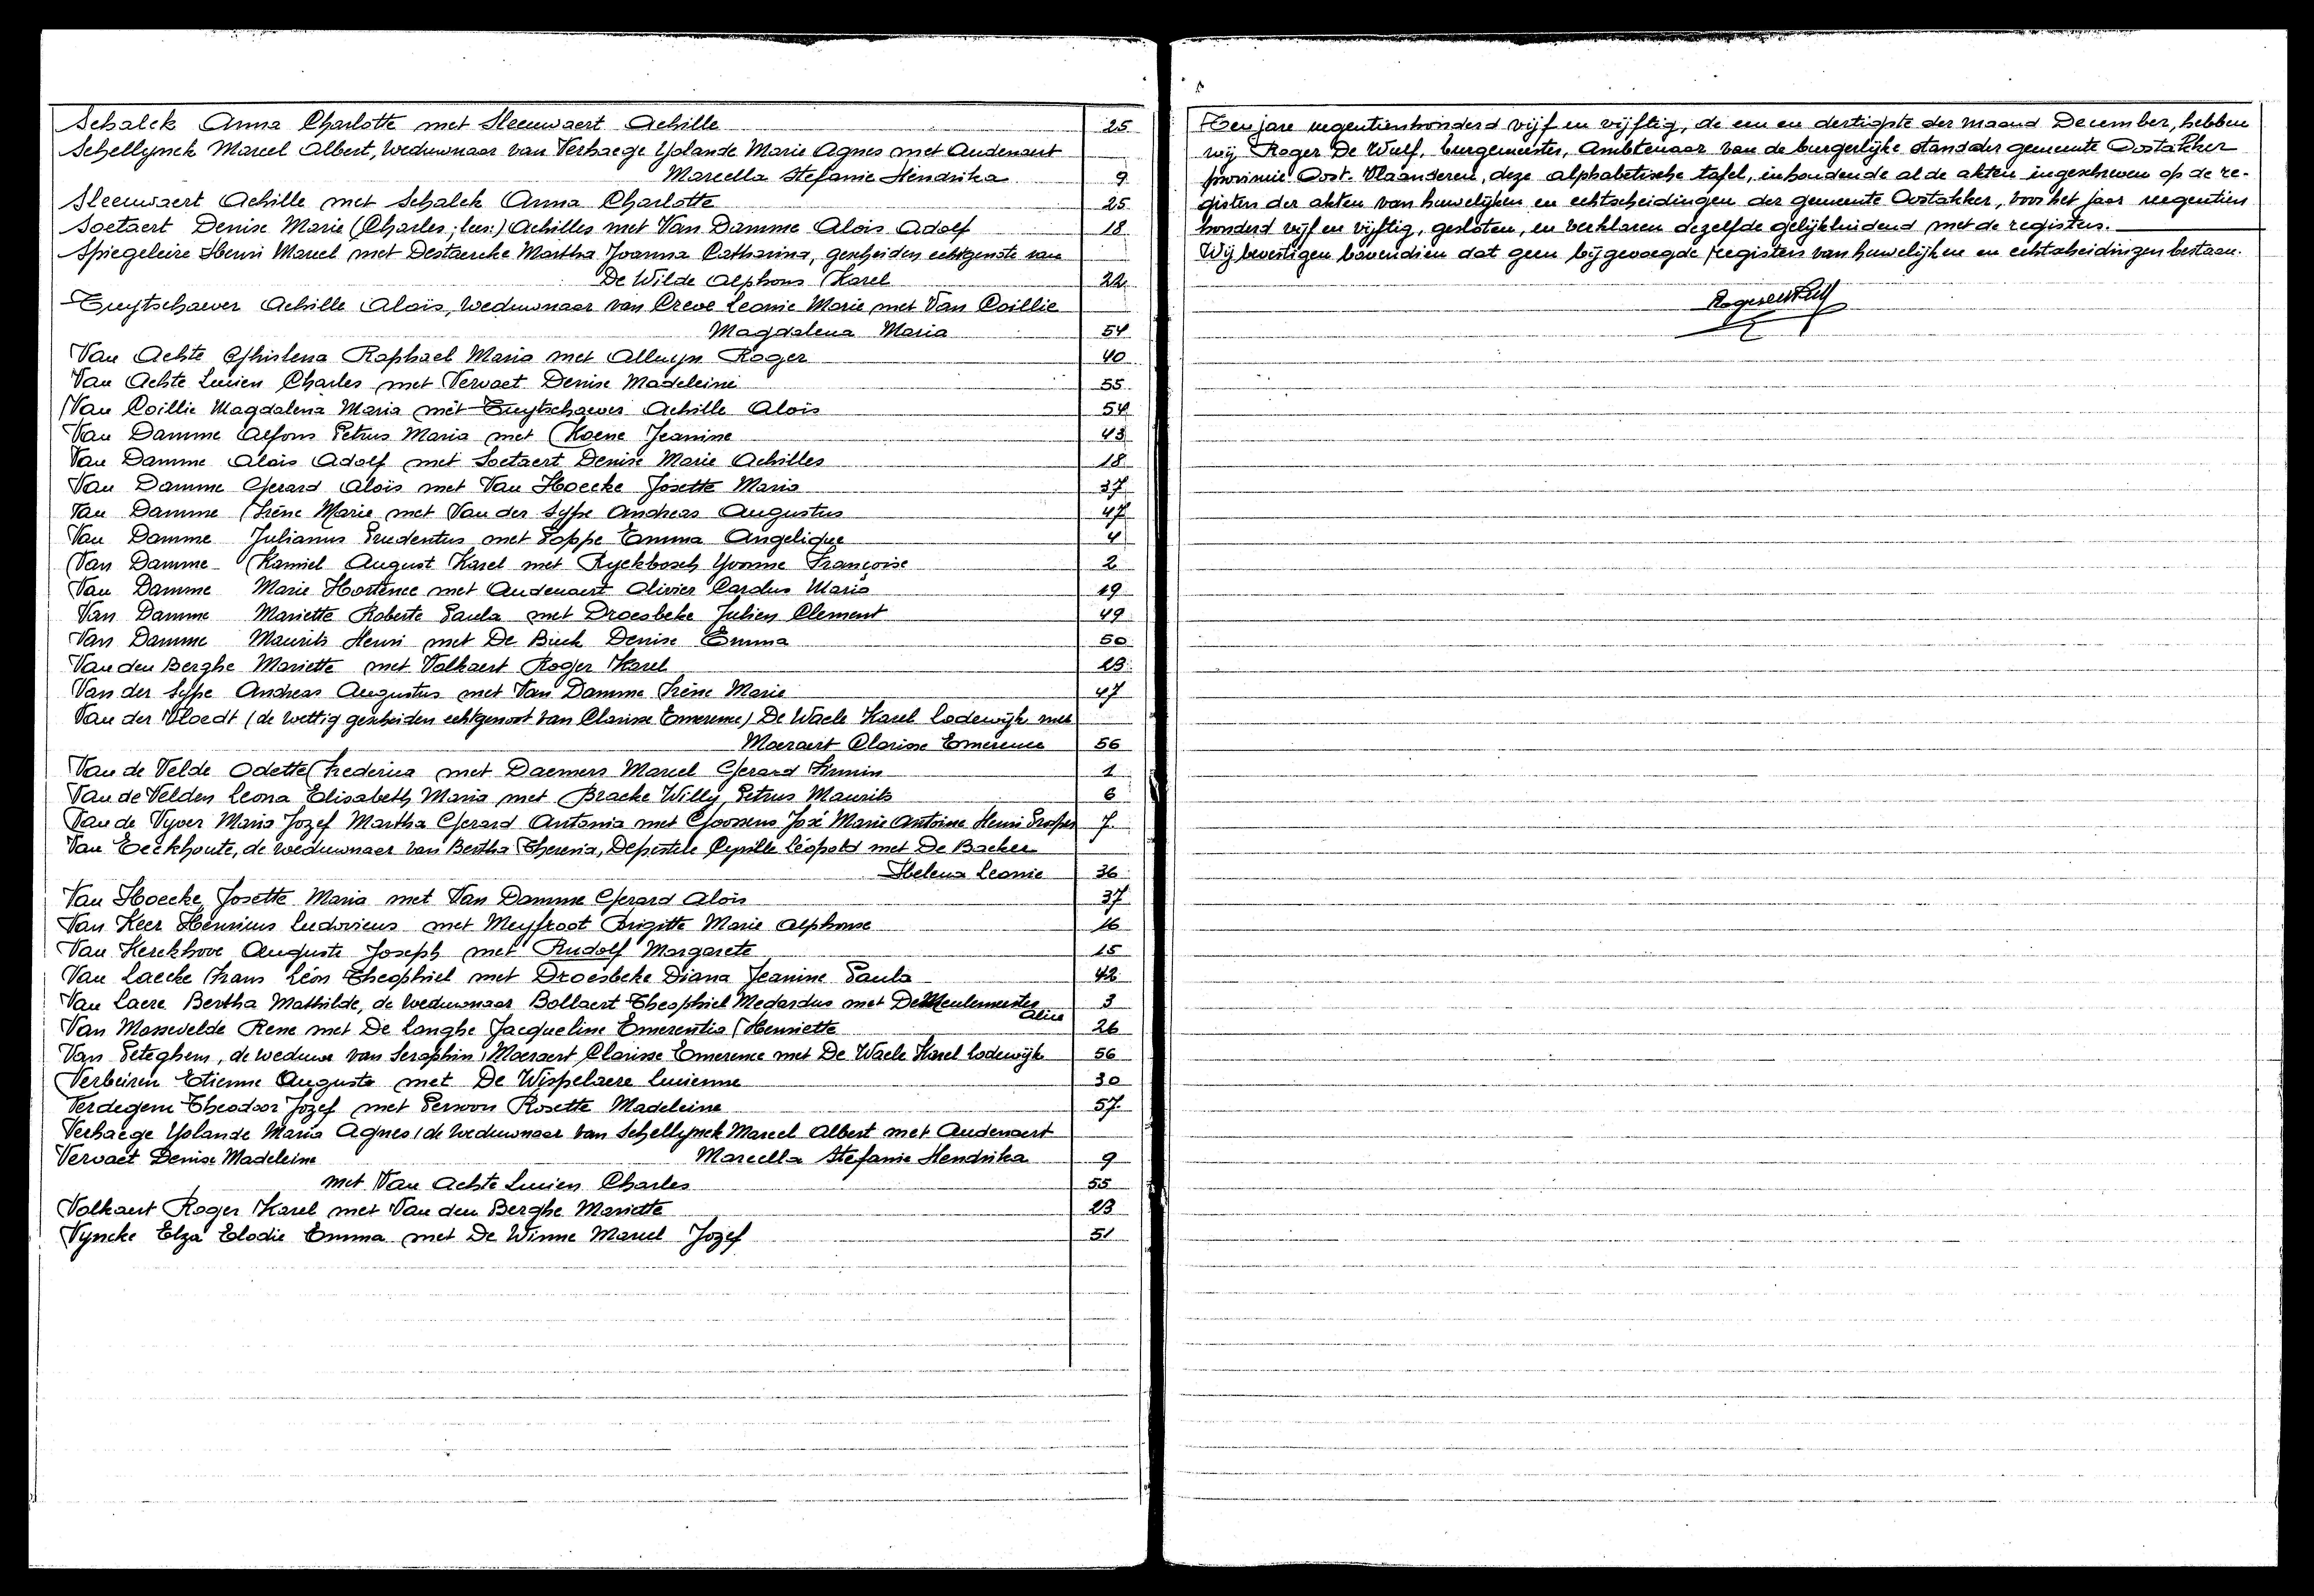 Schalck Anna Charlotte met Sleeuwaert Achille 25
Schellynck Marcel Albert, weduwnaar van Verhaege Yolande Marie Agnes met Audenaert
Marcella Stefanie Hendrika 9
Sleeuwaert Achille met Schalck Anna Charlotte 25
Soetaert Denise Marie (Charles; lees:) Achilles met Van Damme Alois Adolf 18
Spiegeleire Henri Marcel met Destaercke Martha Joanna Catharina, gescheiden echtgenote van
De Wilde Alphons Karel 22
Tuytschaever Achille Aloïs, weduwnaar van Creve Leonie Marie met Van Coillie
Magdalena Maria 54
Van Achte Ghislena Raphael Maria met Alluyn Roger 40
Van Achte Lucien Charles met Vervaet Denise Madeleine 55
Van Coillie Magdalena Maria met Tuytschaever Achille Aloïs 54
Van Damme Alfons Petrus Maria met Koene Jeanine 43
Van Damme Aloïs Adolf met Soetaert Denise Marie Achilles 18
Van Damme Gerard Aloïs met Van Hoecke Josette Maria 37
Van Damme Irène Marie met Van der Sype Andreas Augustus 47
Van Damme Julianus Prudentus met Poppe Emma Angelique 4
Van Damme Kamiel August Karel met Ryckbosch Yvonne Françoise 2
Van Damme Marie Hortence met Audenaert Olivier Carolus Maria 19
Van Damme Mariette Roberte Paula met Droesbeke Julien Clement 49
Van Damme Maurits Henri met De Buck Denise Emma 50
Van den Berghe Mariette met Volkaert Roger Karel 23
Van der Sype Andreas Augustus met Van Damme Irène Marie 47
Van der Vloedt (de wettig gescheiden echtgenoot van Clarisse Emerence) De Waele Karel Lodewijk met
Moeraert Clarisse Emerence 56
Van de Velde Odette Frederica met Daemers Marcel Gerard Firmin 1
Van de Velden Leona Elisabeth Maria met Bracke Willy Petrus Maurits 6
Van de Vyver Maria Jozef Martha Gerard Antonia met Goossens José Marie Antoine Henri Prosper 7
Van Eeckhoute, de weduwnaer van Bertha Theresia, Depestele Cyrille Léopold met De Backer
Helena Leonie 36
Van Hoecke Josette Maria met Van Damme Gerard Aloïs 37
Van Keer Henricus Ludovicus met Meyfroot Brigitte Marie Alphonse 16
Van Kerckhove Auguste Joseph met Rudolf Margarete 15
Van Laecke Frans Léon Theophiel met Droesbeke Diana Jeanine Paula 42
Van Laere Bertha Mathilde, de weduwnaar Bollaert Theophiel Medardus met De Meulemeester 3
Alice
Van Massevelde Rene met De Langhe Jacqueline Emerentia Henriette 26
Van Peteghem, de weduwe van Seraphin, Moeraert Clarisse Emerence met De Waele Karel Lodewijk 56
Verbeiren Etienne Auguste met De Wispelaere Lucienne 30
Verdegem Theodoor Jozef met Persoon Rosette Madeleine 57
Verhaege Yolande Maria Agnes, de weduwnaar van Schellynck Marcel Albert met Audenaert
Marcella Stefanie Hendrika 9
Vervaet Denise Madeleine
met Van Achte Lucien Charles 55
Volkaert Roger Karel met Van den Berghe Mariette 23
Vyncke Elza Elodie Emma met De Winne Marcel Jozef 51
Ten jare negentienhonderd vijf en vijftig, de een en dertigste der maand December, hebben
wij Roger De Wulf, burgemeester, Ambtenaar van de burgerlijke stand der gemeente Oostakker
provincie Oost-Vlaanderen, deze alphabetische tafel, inhoudende al de akten ingeschreven op de re-
gisters der akten van huwelijken en echtscheidingen der gemeente Oostakker, voor het jaar negentien
honderd vijf en vijftig, gesloten, en verklaren dezelfde gelijkluidend met de registers.
Wij bevestigen bovendien dat geen bijgevoegde registers van huwelijken en echtscheidingen bestaan.
Roger De Wulf